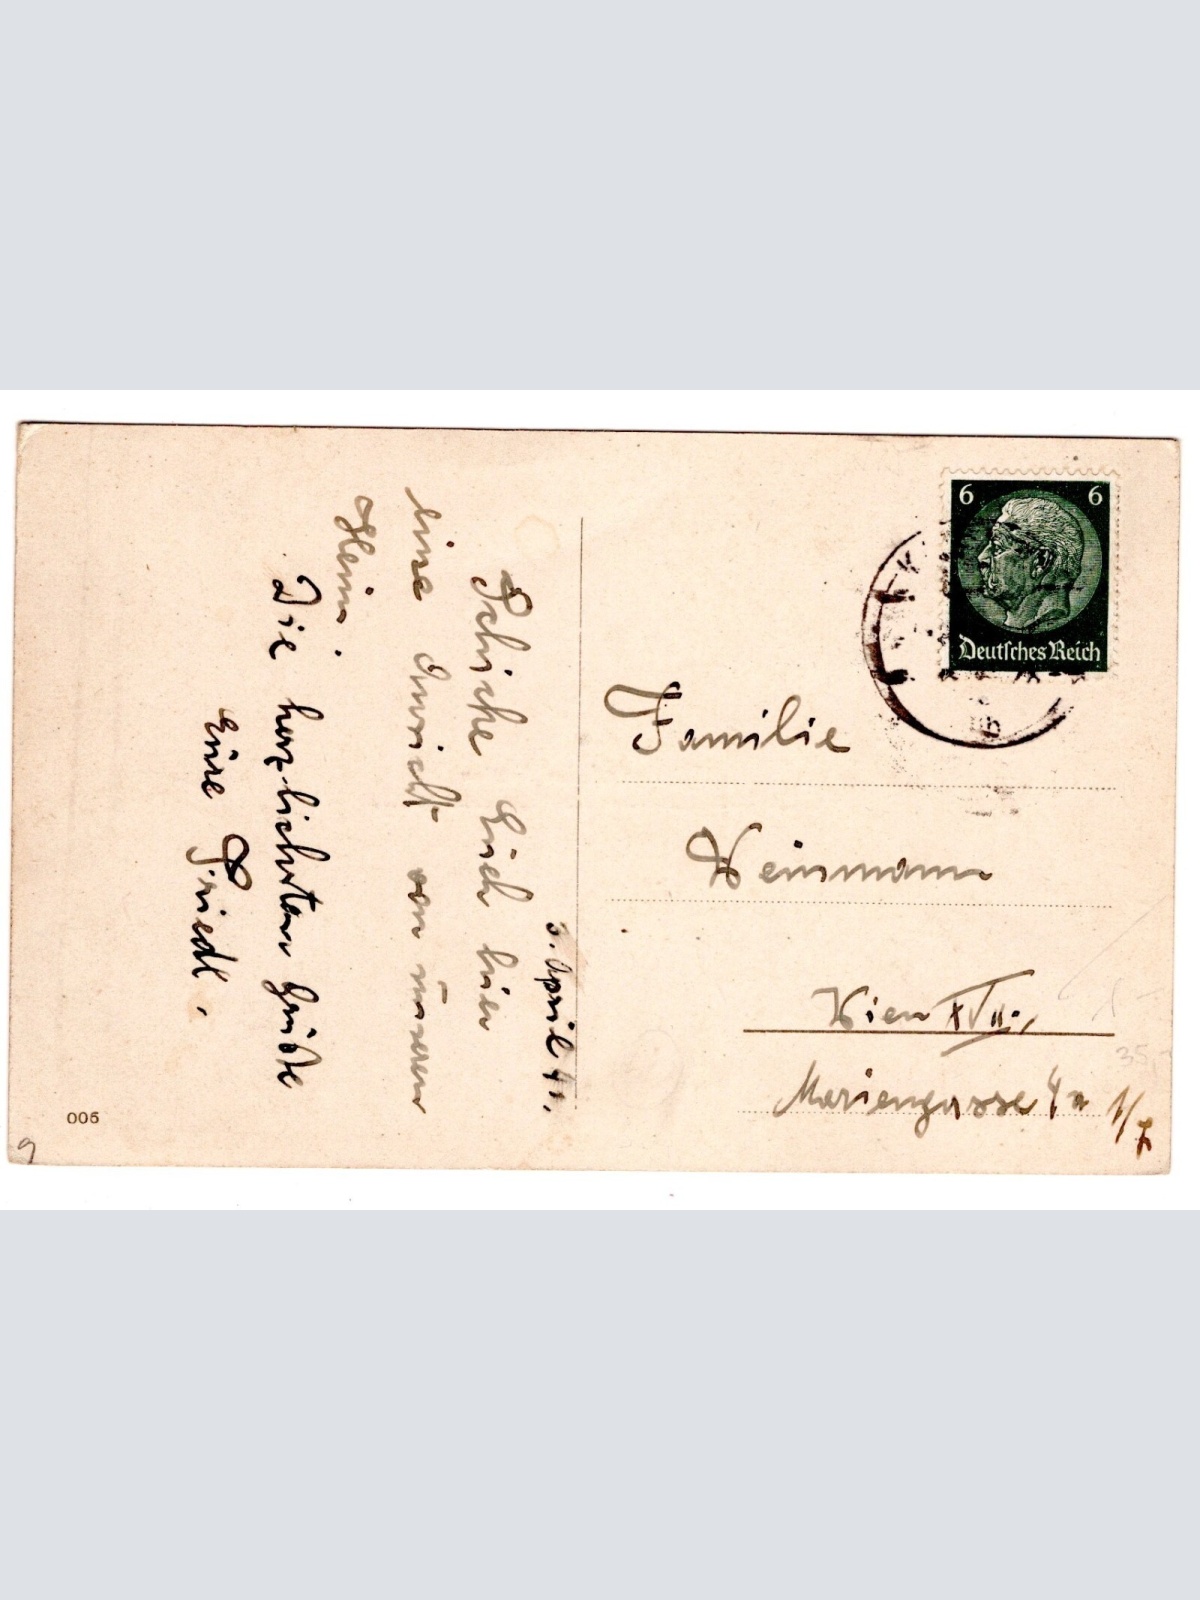 3. April 41.
Schicke Euch hier
eine Ansicht von unserem
Heim.
Die herzlichsten Grüße
Eure Friedl.
6 6
Deutsches Reich
Familie
Weinmann
Wien XVII.,
Mariengasse 4a 1/7
005
9
35